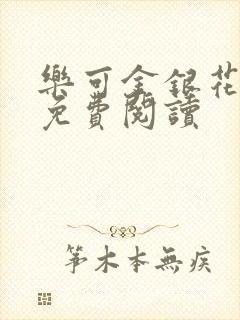 樂可金銀花
免費閱讀
笫木本無疾